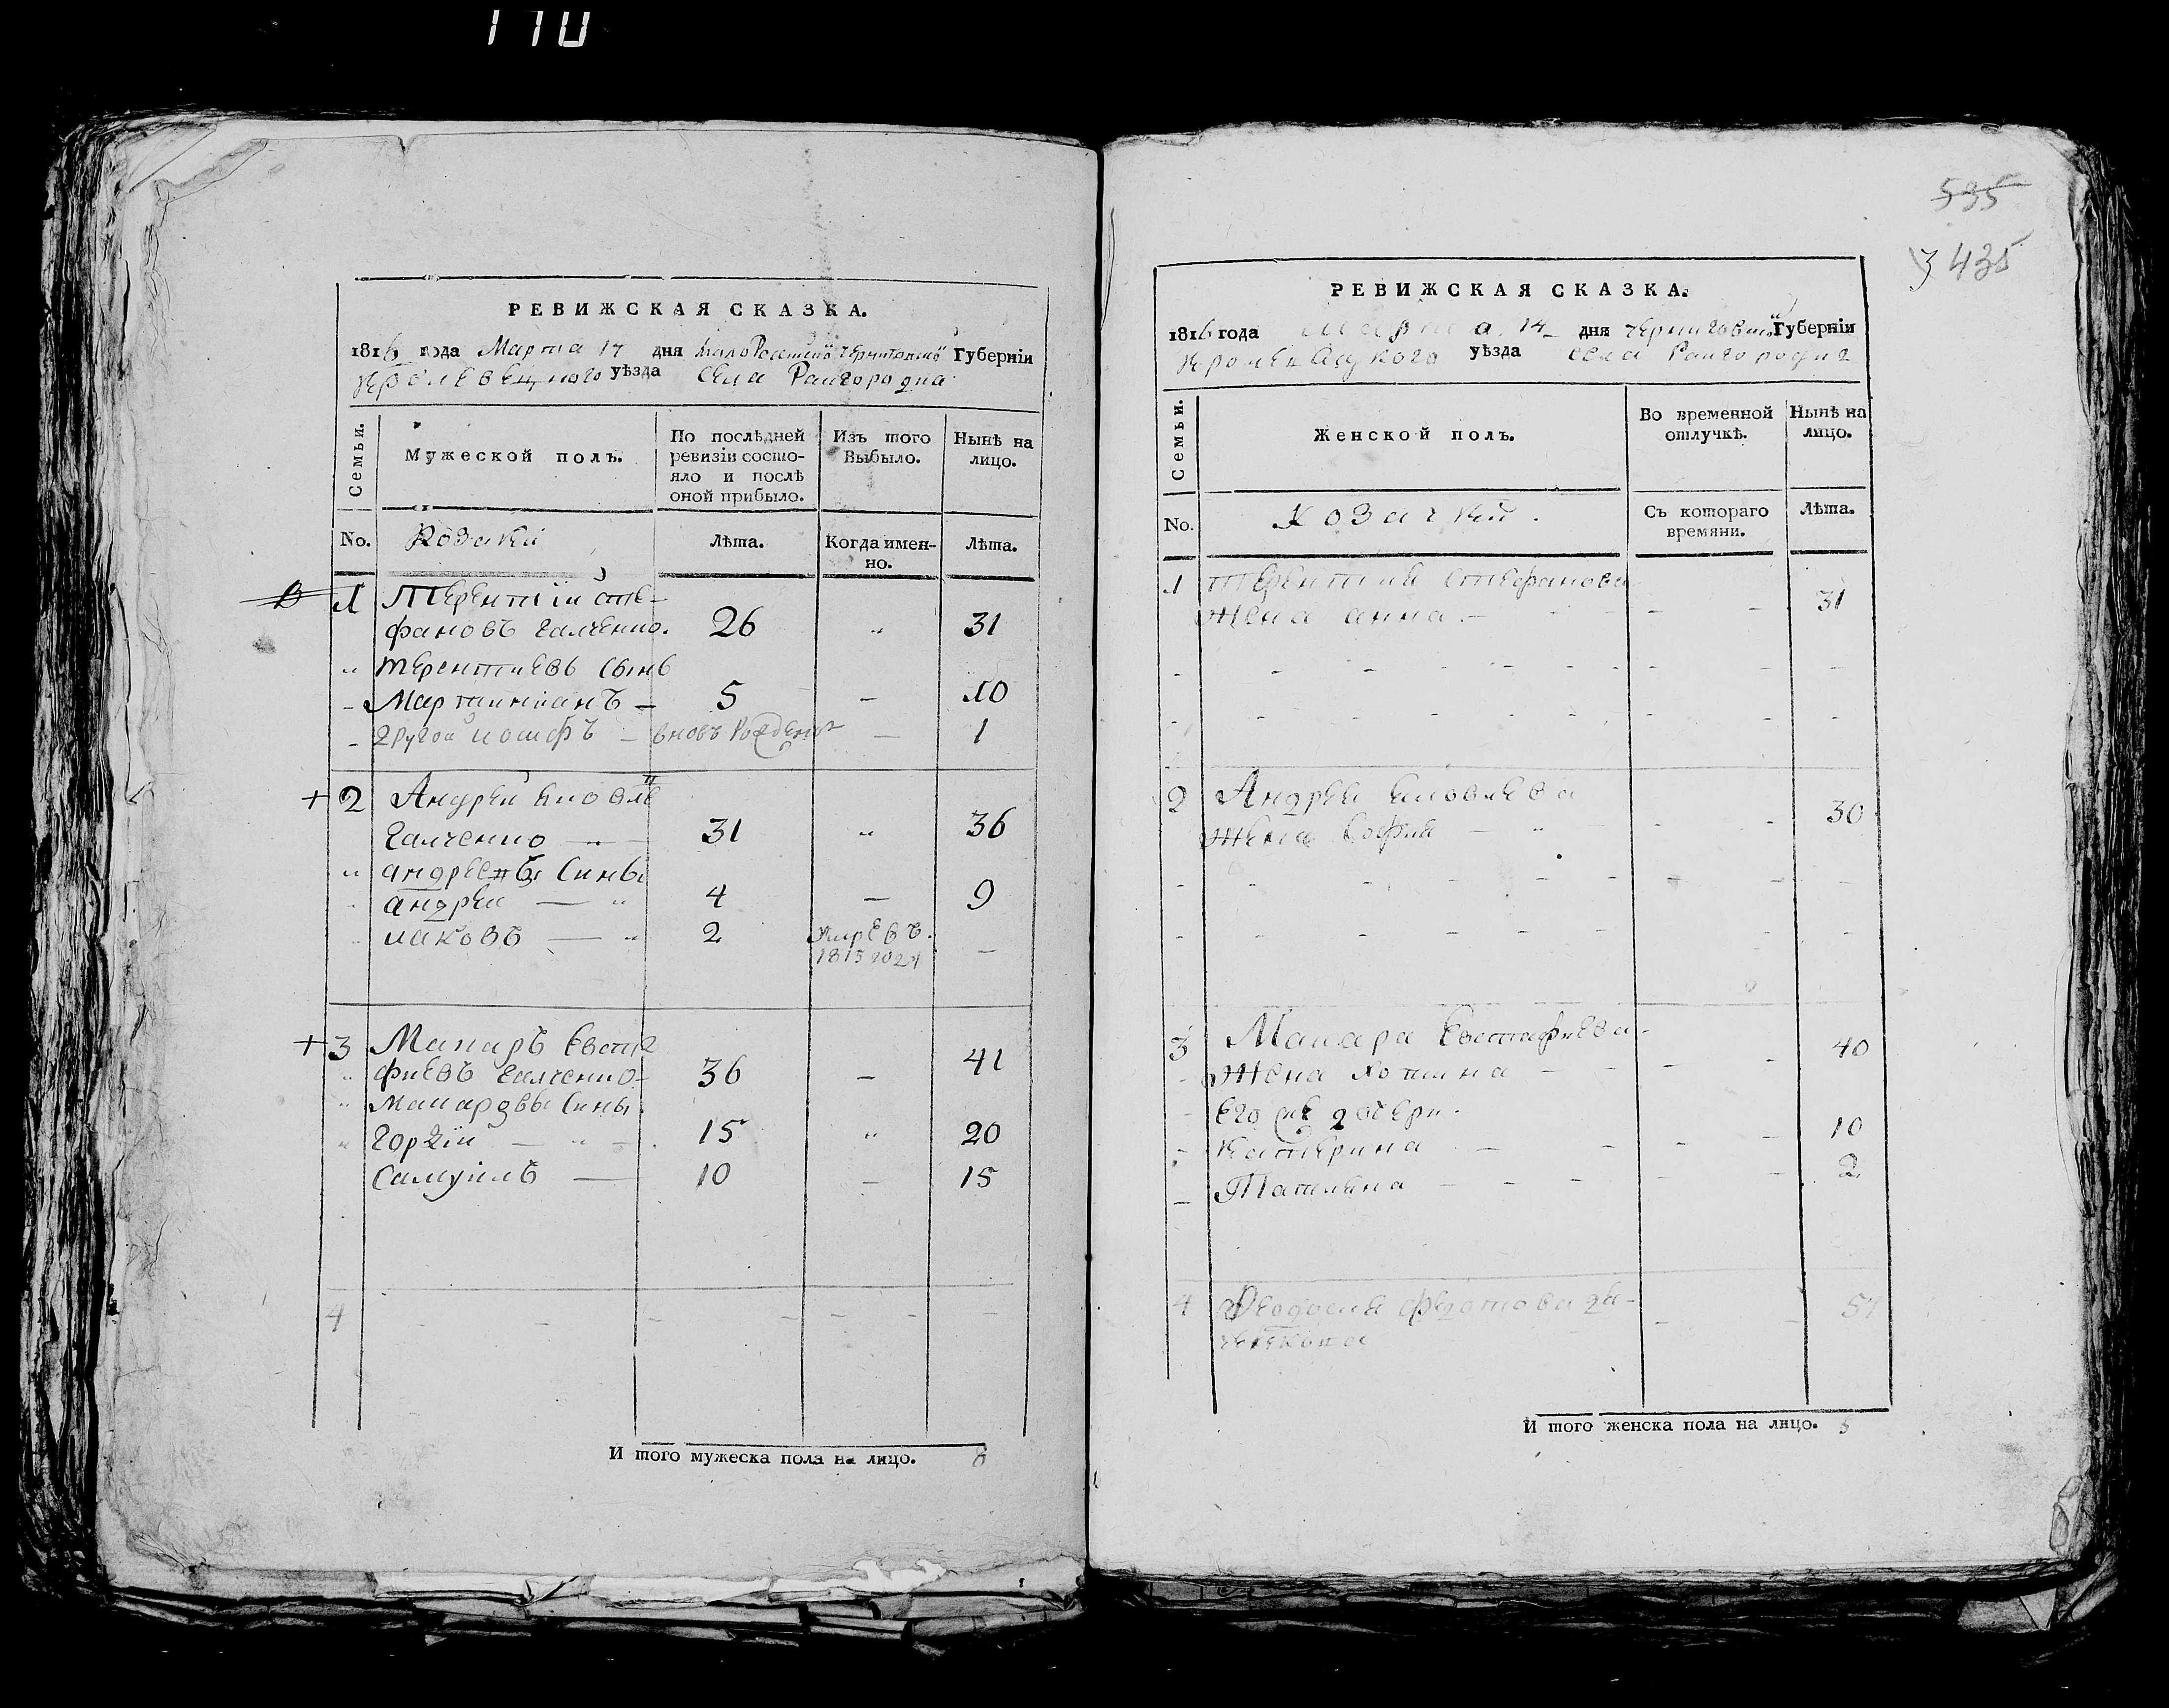 110
РЕВИЖСКАЯ СКАЗКА.
1816 года Марта 17 дня Малоросійской Черниговской Губерніи
Кролевецкого уѣзда Села Райгородка
Семьи.
Мужеской полъ.
По послѣдней ревизіи состояло и послѣ оной прибыло.
Изъ того Выбыло.
Нынѣ на лицо.
No.
Козаки
Лѣта.
Когда именно.
Лѣта.
1 Терентій Сте-
фановъ Галченко. 26 „ 31
„ Терентиевъ сынъ
– Мартиніанъ – 5 – 10
– другой Иосифъ – вновь рожденъ – 1
+ 2 Андрей
Галченко 31 „ 36
„ андреевы сины
андрей — „ 4 — 9
иаковъ — „ 2 Умре въ
1815 году –
+ 3 Макаръ Евста
фиевъ Галченко 36 – 41
„ Макаровы сины
„ Гордїй – „ – 15 „ 20
Самуилъ — 10 – 15
4
И того мужеска пола на лицо. 8
535
435
РЕВИЖСКАЯ СКАЗКА.
1816 года Марта 14 дня Черниговской Губерніи
уѣзда Села Райгородка
Семьи.
Женской полъ.
Во временной отлучкѣ.
Нынѣ на лицо.
No.
Козачки.
Съ котораго времяни.
Лѣта.
1 Терентия Стефанова
жена анна. – 31
2 Андрея
жена София 30
3 Макара Евстафиева
жена 40
Его же дочери.
Катерина 10
Татияна 2
4 Феодосия Федотова
51
И того женска пола на лицо. 5